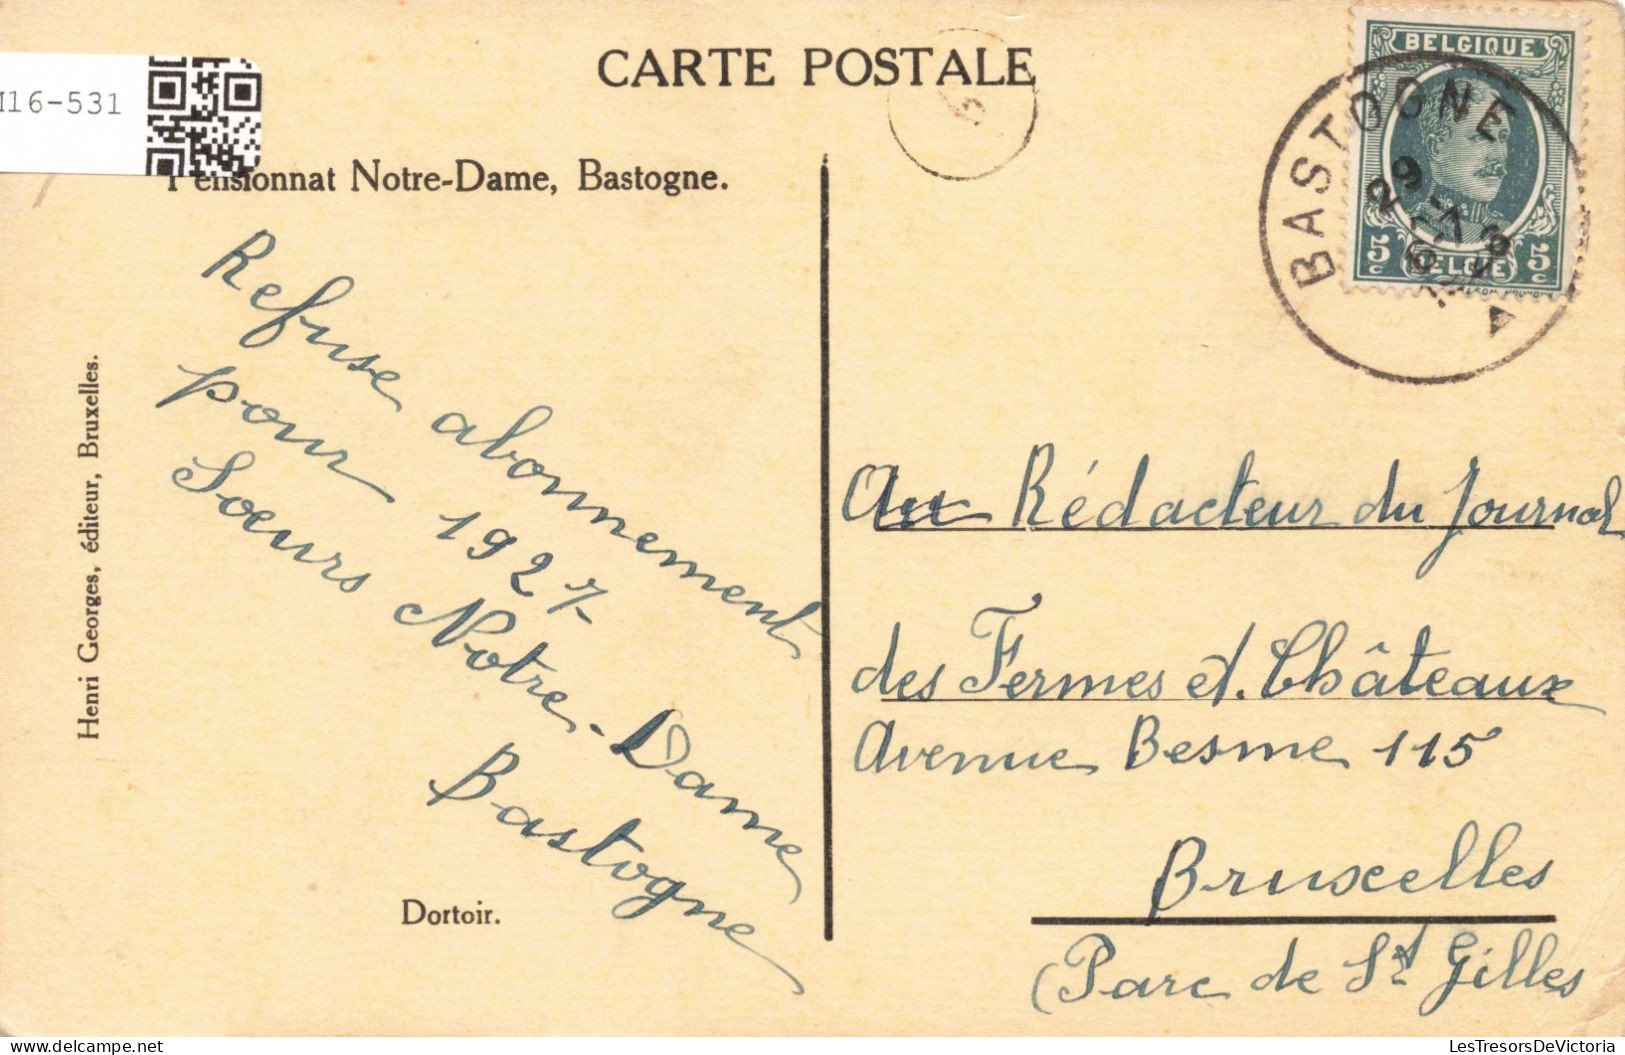 CARTE POSTALE
16-531
Pensionnat Notre-Dame, Bastogne.
Refuse abonnement
pour 1927
Sœurs Notre-Dame
Bastogne
Henri Georges, éditeur, Bruxelles.
Dortoir.
BELGIQUE
5c BELGIE 5c
BASTOGNE
29
Au Rédacteur du Journal
des Fermes et Châteaux
Avenue Besme 115
Bruxelles
(Parc de St Gilles
LesTresorsDeVictoria